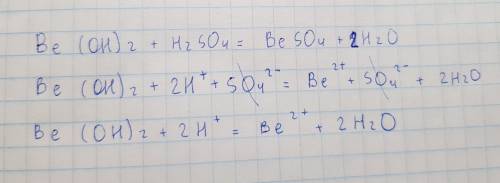 Be (OH)2 + H2SO4 = BeSO4 + 2H2O
Be (OH)2 + 2H⁺ + SO4²⁻ = Be²⁺ + SO4²⁻ + 2H2O
Be (OH)2 + 2H⁺ = Be²⁺ + 2H2O